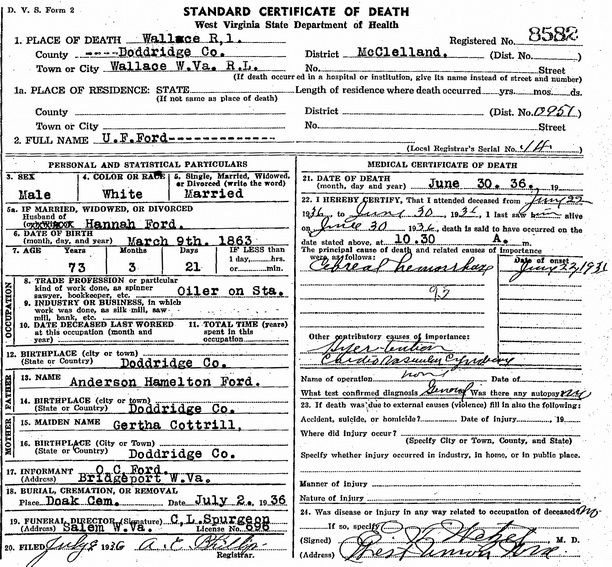 D. V. S. Form 2
STANDARD CERTIFICATE OF DEATH
West Virginia State Department of Health
1. PLACE OF DEATH Wallace R,1. Registered No. 8582
County ----Doddridge Co. District McClelland. (Dist. No.
Town or City Wallace W.Va. R.L. No. Street
(If death occurred in a hospital or institution, give its name instead of street and number)
1a. PLACE OF RESIDENCE: STATE Length of residence where death occurred yrs. mos. ds.
(If not same as place of death)
County District (Dist. No. 0951)
Town or City No. Street
2. FULL NAME U.F.Ford--------------
(Local Registrar's Serial No. 14)
PERSONAL AND STATISTICAL PARTICULARS
3. SEX 4. COLOR OR RACE 5. Single, Married, Widowed, or Divorced (write the word)
Male White Married
5a. IF MARRIED, WIDOWED, OR DIVORCED
Husband of Hannah Ford.
6. DATE OF BIRTH
(month, day, and year) March 9th. 1863
7. AGE Years Months Days IF LESS than
1 day, hrs.
73 3 21 or min.
OCCUPATION
8. TRADE PROFESSION or particular
kind of work done, as spinner
sawyer, bookkeeper, etc. Oiler on Sta.
9. INDUSTRY OR BUSINESS, in which
work was done, as silk mill, saw
mill, bank, etc.
10. DATE DECEASED LAST WORKED
at this occupation (month and
year)
11. TOTAL TIME (years)
spent in this
occupation
12. BIRTHPLACE (city or town)
(State or Country) Doddridge Co.
FATHER
13. NAME Anderson Hamelton Ford.
14. BIRTHPLACE (city or town)
(State or Country) Doddridge Co.
MOTHER
15. MAIDEN NAME Gertha Cottrill,
16. BIRTHPLACE (City or Town)
(State or Country) Doddridge Co.
17. INFORMANT O.C.Ford.
(Address) Bridgeport W.Va.
18. BURIAL, CREMATION, OR REMOVAL
Place Doak Cem. Date July 2. 1936
19. FUNERAL DIRECTOR (Signature) C,L.Spurgeon
(Address) Salem W.Va. License No. 696
20. FILED July 8 1936 A. E.
Registrar.
MEDICAL CERTIFICATE OF DEATH
21. DATE OF DEATH
(month, day, and year) June 30. 36. 19
22. I HEREBY CERTIFY, That I attended deceased from June 22
1936, to June 30 1936, I last saw him alive
on June 30 1936, death is said to have occurred on the
date stated above, at 10.30 A. m.
The principal cause of death and related causes of importance
were as follows: Date of onset
Cebreal hemorrhage June 22, 1936
Other contributory causes of importance:
Cardio Vascular
Name of operation none Date of
What test confirmed diagnosis General Was there any autopsy no
23. If death was due to external causes (violence) fill in also the following:
Accident, suicide, or homicide? Date of injury 19
Where did injury occur?
(Specify City or Town, County, and State)
Specify whether injury occurred in industry, in home, or in public place.
Manner of injury
Nature of injury
24. Was disease or injury in any way related to occupation of deceased no
If so, specify
(Signed) M. D.
(Address) West Union